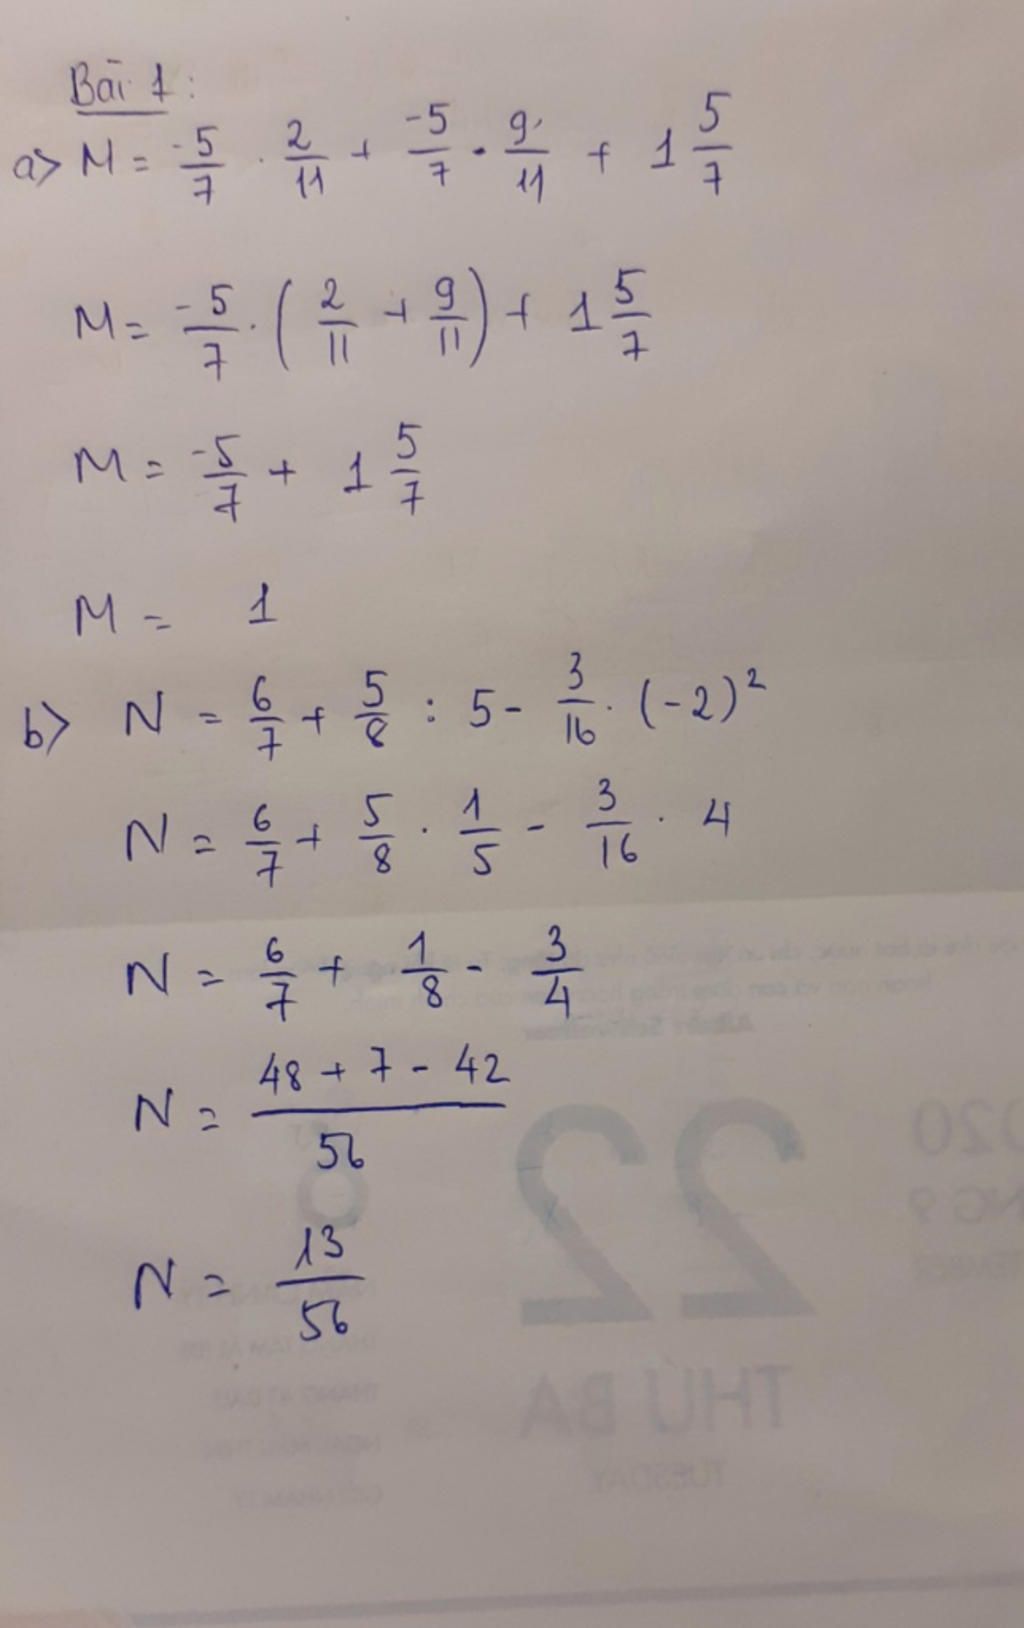 Bài 1:
a) M = -5/7 . 2/11 + -5/7 . 9/11 + 1 5/7
M = -5/7 . ( 2/11 + 9/11 ) + 1 5/7
M = -5/7 + 1 5/7
M = 1
b) N = 6/7 + 5/8 : 5 - 3/16 . (-2)²
N = 6/7 + 5/8 . 1/5 - 3/16 . 4
N = 6/7 + 1/8 - 3/4
N = 48 + 7 - 42 / 56
N = 13/56
22
THỨ BA
TUESDAY